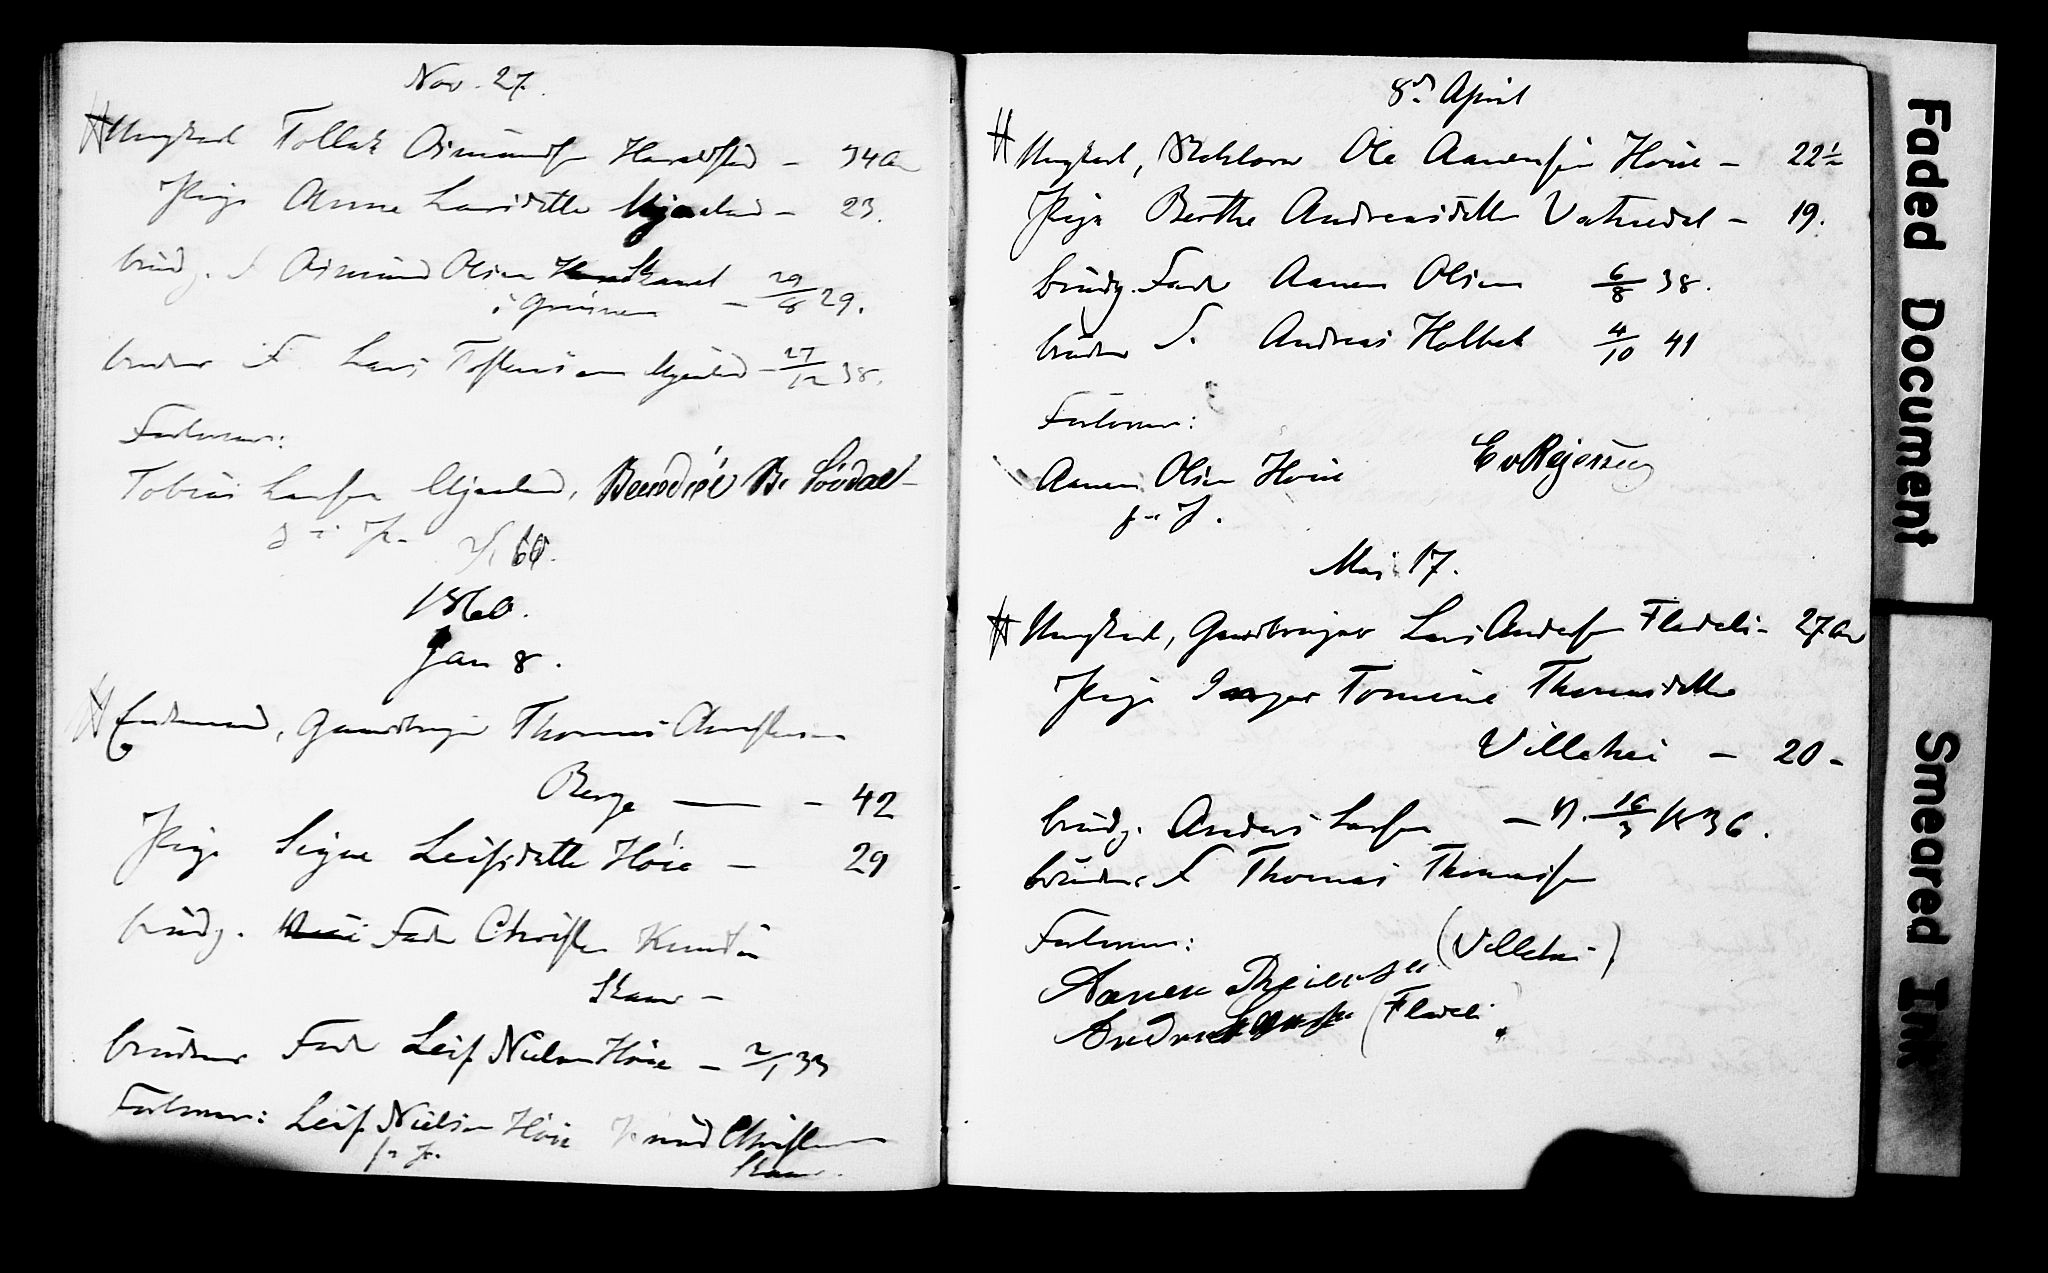 Nov. 27.
Ungkarl Tollak Osmundsen Haraldstad - 34 Aar
Pige Anne Larsdatter Mjaaland - 23.
brudg. F Osmund Olsen Skaaret
i Grinnen - 29/8 29.
brudens F. Lars Tostensen Mjaaland - 27/12 38.
Forlovere:
Tobias Larsen Mjaaland, B. Lövdal
m. i. P. 60.
1860.
Jan 8.
Enkemand, Gaardbruger Thomas Christensen
Berge - 42
Pige Signe Leifsdatter Höie - 29
brudg. Fader Christen Knudsen
Skaar -
brudens Fader Leif Nielsen Höie - 2/1 33
Forlovere: Leif Nielsen Höie Knud Christensen
m. P. Skaar.
8de April
Ungkarl, Ole Aanensen Höie - 22½
Pige Berthe Andreasdatter Vatnedal - 19.
brudg. Fader Aanen Olsen 6/8 38.
brudens F. Andreas Holbek 4/10 41
Forlovere:
Aanen Olsen Höie E v Rejersen
m. P.
Mai 17.
Ungkarl, Gaardbruger Lars Andersen Fladeli - 27 Aar
Pige Inger Tomine Thomasdatter
Villehei - 20 -
brudg. Anders Larsen - V. 16/3 1836.
brudens F Thomas Thomassen
Forlovere: (Villehei)
Aanen
Anders Larsen (Fladeli)
Faded Document
Smeared Ink